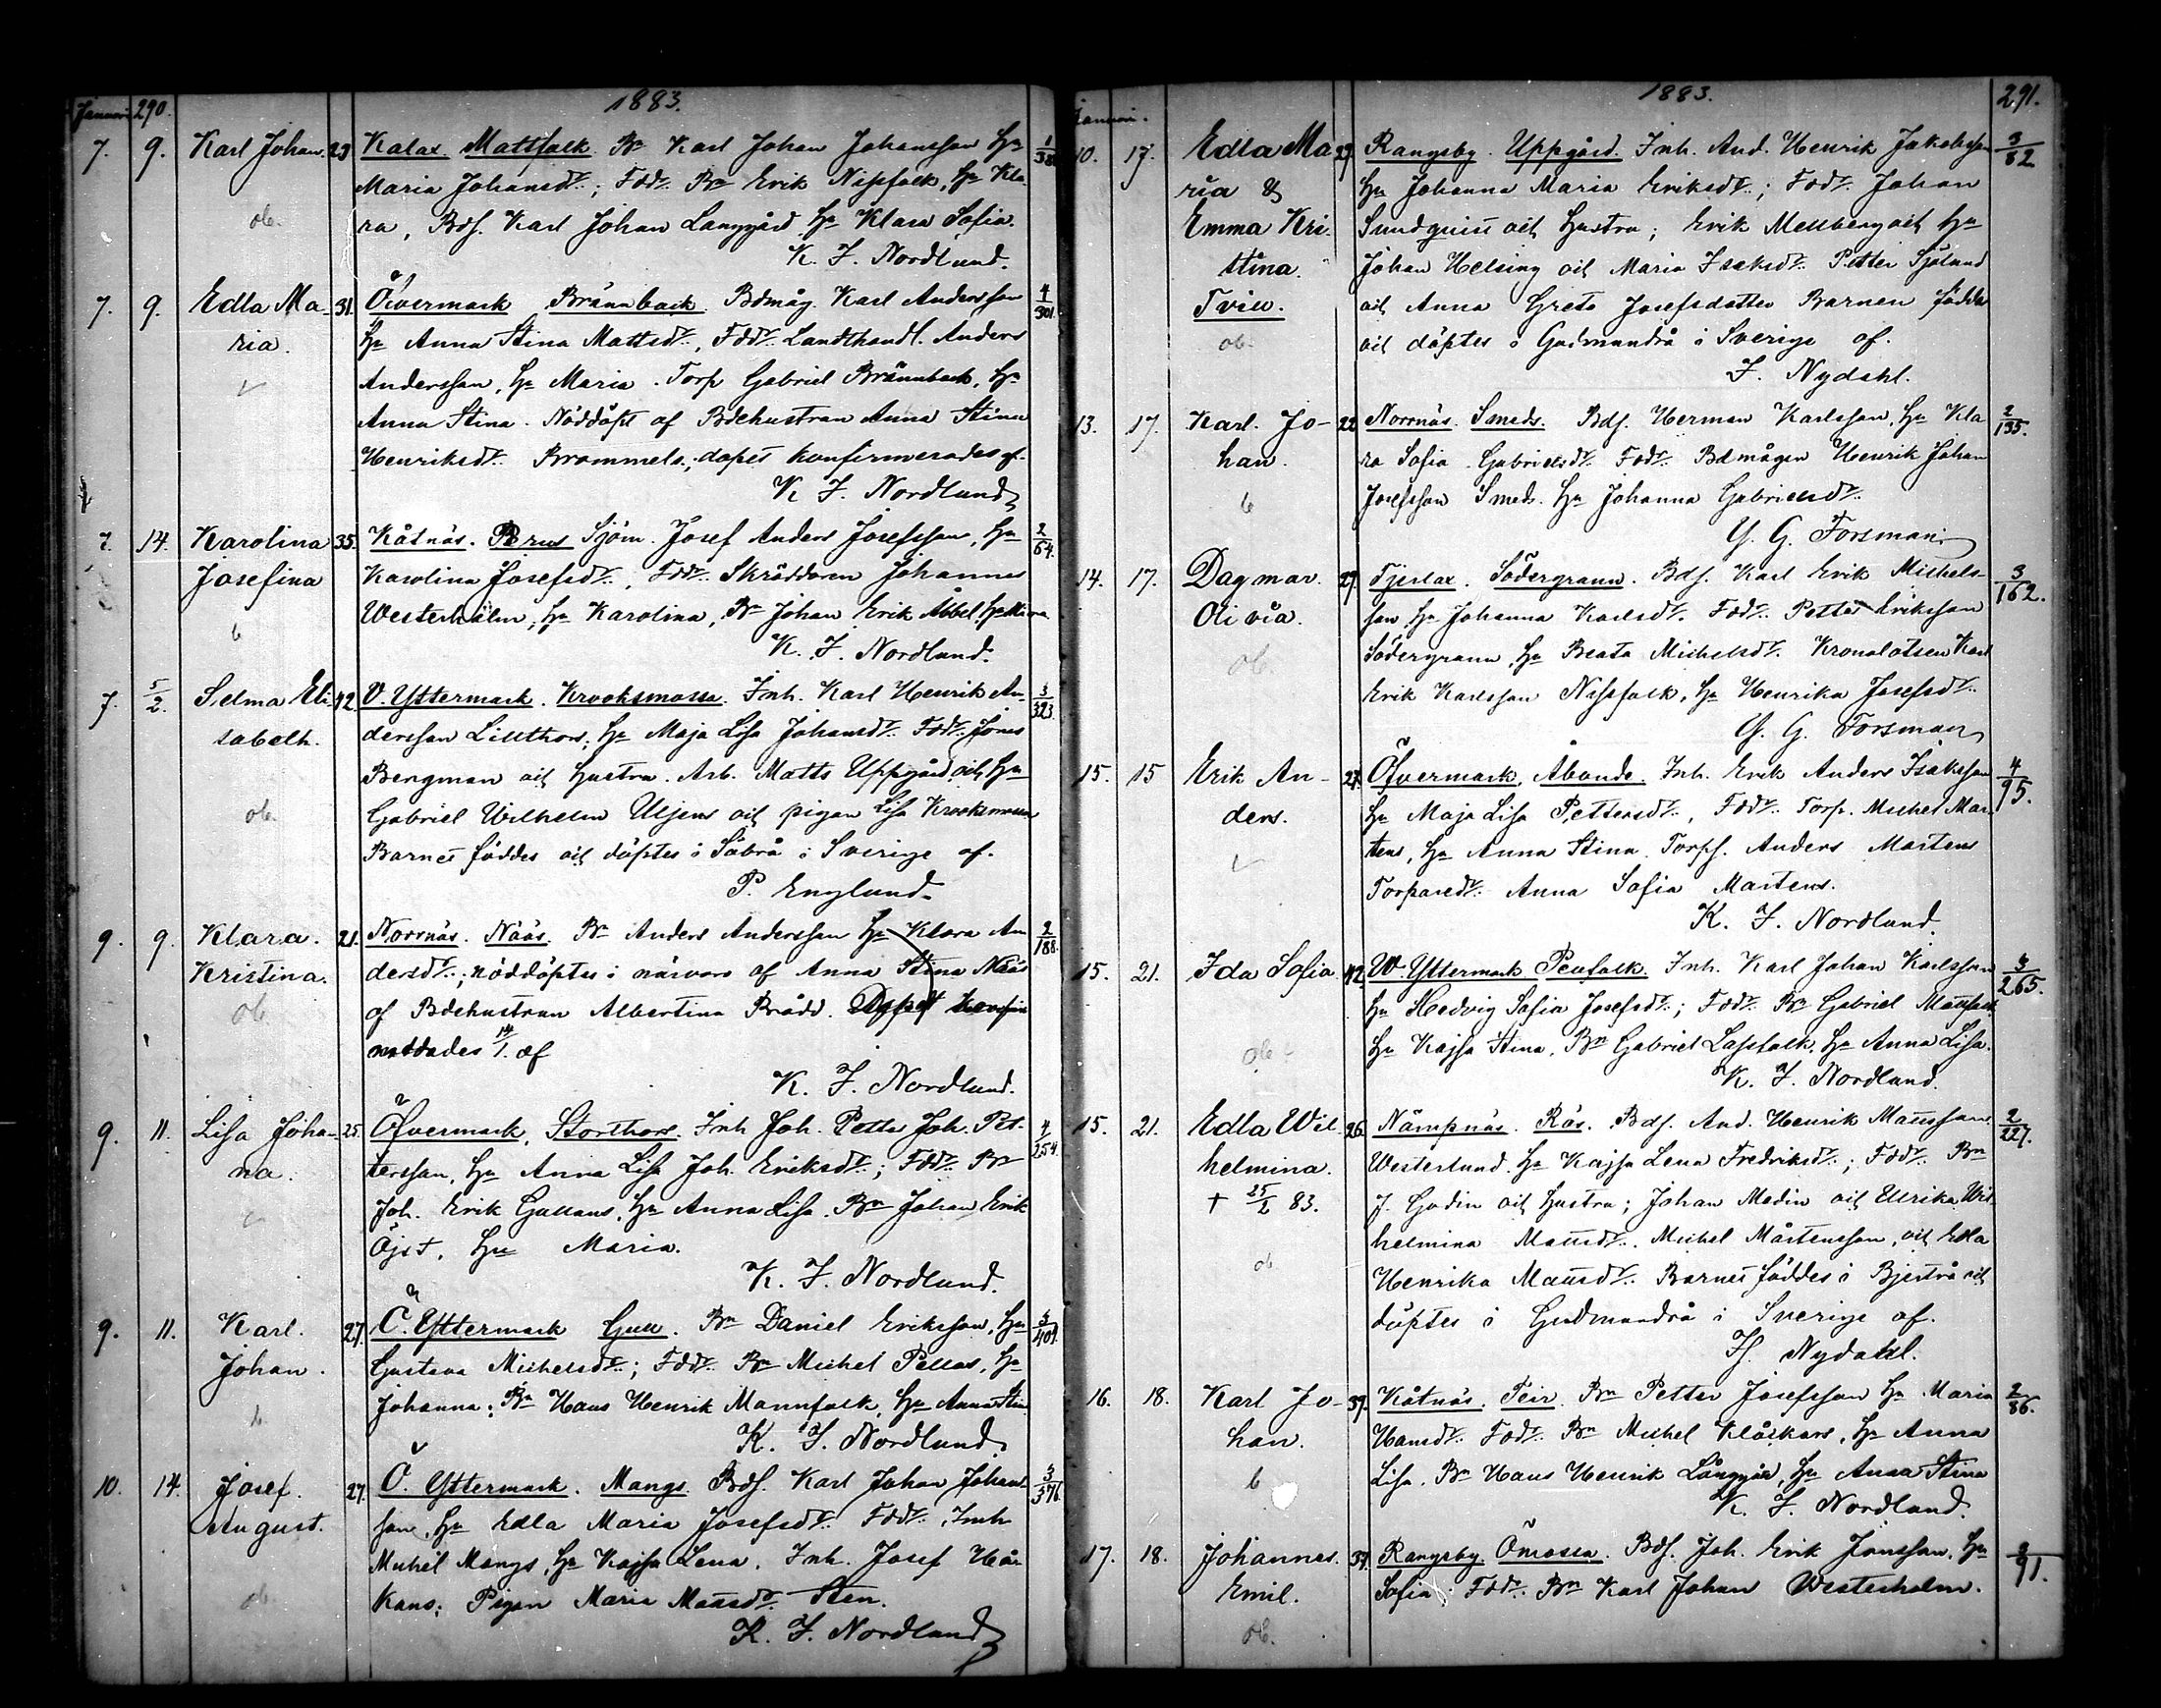 Januari 290. 1883.
7. 9. Karl Johan. 23 Kalax. Mattfolk. Bn Karl Johan Johansson Hu 1/38
Maria Johansdr.; Fddr. Bn Erik Nissfolk, Hu Kla-
ob. ra, Bds. Karl Johan Långgård Hu Klara Sofia.
K. J. Nordlund.
7. 9. Edla Ma- 31. Öfvermark Brännback. Bdmåg. Karl Andersson 4/301.
ria. Hu Anna Stina Mattsdr., Fddr. Landthandl. Anders
Andersson, Hu Maria. Torp Gabriel Brännback, Hu
Anna Stina. Nöddöpt af Bdehustrun Anna Stina
Henriksdr. Brommels.; dopet konfirmerades af
K. J. Nordlund
7. 14. Karolina 35. Kåtnäs. Perus Sjöm. Josef Anders Josefsson, Hu 2/64.
Josefina Karolina Josefsdr., Fddr. Skräddaren Johannes
Westerholm, Hu Karolina, Bn Johan Erik Abbel, Hu Maria
b K. J. Nordlund.
7. 5/2. Selma Eli- 42. V. Yttermark. Krooksmossa. Inh. Karl Henrik An- 3/323.
sabeth. dersson Lillthors, Hu Maja Lisa Johansdr. Fddr. Jonas
Bergman och hustru. Arb. Matts Uppgård och Hu
ob. Gabriel Wilhelm Uljens och pigan Lisa Krooksmossa
Barnet föddes och döptes i Säbrå i Sverige af.
P. Englund.
9. 9. Klara. 21. Norrnäs. Nääs. Bn Anders Andersson Hu Klara An 2/188.
Kristina. dersdr.; nöddöptes i närvaro af Anna Stina Nääs
ob af Bdehustrun Albertina Brådd. Dopet konfir
merades 14/1. af
K. J. Nordlund.
9. 11. Lisa Joha- 25. Öfvermark. Storthors. Inh Joh. Petter Joh. Pet- 4/254.
na. tersson, Hu Anna Lisa Joh. Eriksdr.; Fddr. Bn
Joh. Erik Gullans, Hu Anna Lisa. Bn Johan Erik
Öjst, Hu Maria.
K. J. Nordlund.
9. 11. Karl. 27. Ö. Yttermark Gull. Bn Daniel Eriksson, Hu 3/401.
Johan. Gustava Michelsdr.; Fddr. Bn Michel Pellas, Hu
b Johanna; Bn Hans Henrik Mannfolk, Hu Anna Stin.
K. J. Nordlund.
10. 14. Josef. 27. Ö. Yttermark. Mangs. Bds. Karl Johan Johans- 3/376.
August. son, Hu Edla Maria Josefsdr. Fddr. Inh
Michel Mangs, Hu Kajsa Lena. Inh. Josef Hå-
ob kans; Pigan Maria Mattsdr. Sten.
K. J. Nordlund
Januari. 1883. 291.
10. 17. Edla Ma 29. Rangsby. Uppgård. Inh. And. Henrik Jakobsson 3/82
ria & Hu Johanna Maria Eriksdr.; Fddr. Johan
Emma Kri- Sundquist och hustru; Erik Mellberg och Hu
stina. Johan Helsing och Maria Isaksdr. Petter Sjölund
Tvill. och Anna Greta Josefsdotter Barnen födda
ob. och döptes i Gudmundrå i Sverige af.
J. Nydahl.
13. 17. Karl. Jo- 22 Norrnäs. Smeds. Bds. Herman Karlsson, Hu Kla 2/195.
han. ra Sofia Gabrielsdr. Fddr. Bdmågen Henrik Johan
b Josefsson Smeds. Hu Johanna Gabrielsdr.
G. G. Forsman
14. 17. Dagmar. 27. Tjerlax. Södergrann. Bds. Karl Erik Michels- 3/162.
Olivia. son, Hu Johanna Karlsdr. Fddr. Petter Eriksson
ob. Södergrann, Hu Beata Michelsdr. Kronolotsen Karl
Erik Karlsson Nissfolk, Hu Henrika Josefsdr.
G. G. Forsman
15. 15 Erik An- 27. Öfvermark. Åbonde. Inh. Erik Anders Isaksson 4/95.
ders. Hu Maja Lisa Pettersdr., Fddr. Torp. Michel Mar-
tens, Hu Anna Stina. Torps. Anders Martens
Torparedr. Anna Sofia Martens.
K. J. Nordlund.
15. 21. Ida Sofia. 42. W. Yttermark Penfolk. Inh. Karl Johan Karlsson 3/265.
Hu Hedvig Sofia Josefsdr.; Fddr. Bn Gabriel Mattfolk
ob. Hu Kajsa Stina. Bn Gabriel Lassfolk, Hu Anna Lisa.
K. J. Nordlund.
15. 21. Edla Wil- 26. Nämpnäs. Räs. Bds. And. Henrik Mattsson 2/227.
helmina. Westerlund. Hu Kajsa Lena Fredriksdr.; Fddr. Bn
† 25/2 83. J. Godin och hustru; Johan Medin och Ulrika Wil-
helmina Mattsdr. Michel Mårtensson, och Edla
ob Henrika Mattsdr. Barnet föddes i Bjertrå och
döptes i Gudmundrå i Sverige af.
J. Nydahl.
16. 18. Karl Jo- 39. Kåtnäs. Peir. Bn Petter Josefsson Hu Maria 2/86.
han. Hansdr. Fddr. Bn Michel Klåckars, Hu Anna
b Lisa. Bn Hans Henrik Långgård, Hu Anna Stina
K. J. Nordlund.
17. 18. Johannes. 39. Rangsby. Ömossa. Bds. Joh. Erik Jonsson, Hu 3/91.
Emil. Sofia; Fddr. Bn Karl Johan Westerholm.
ob.